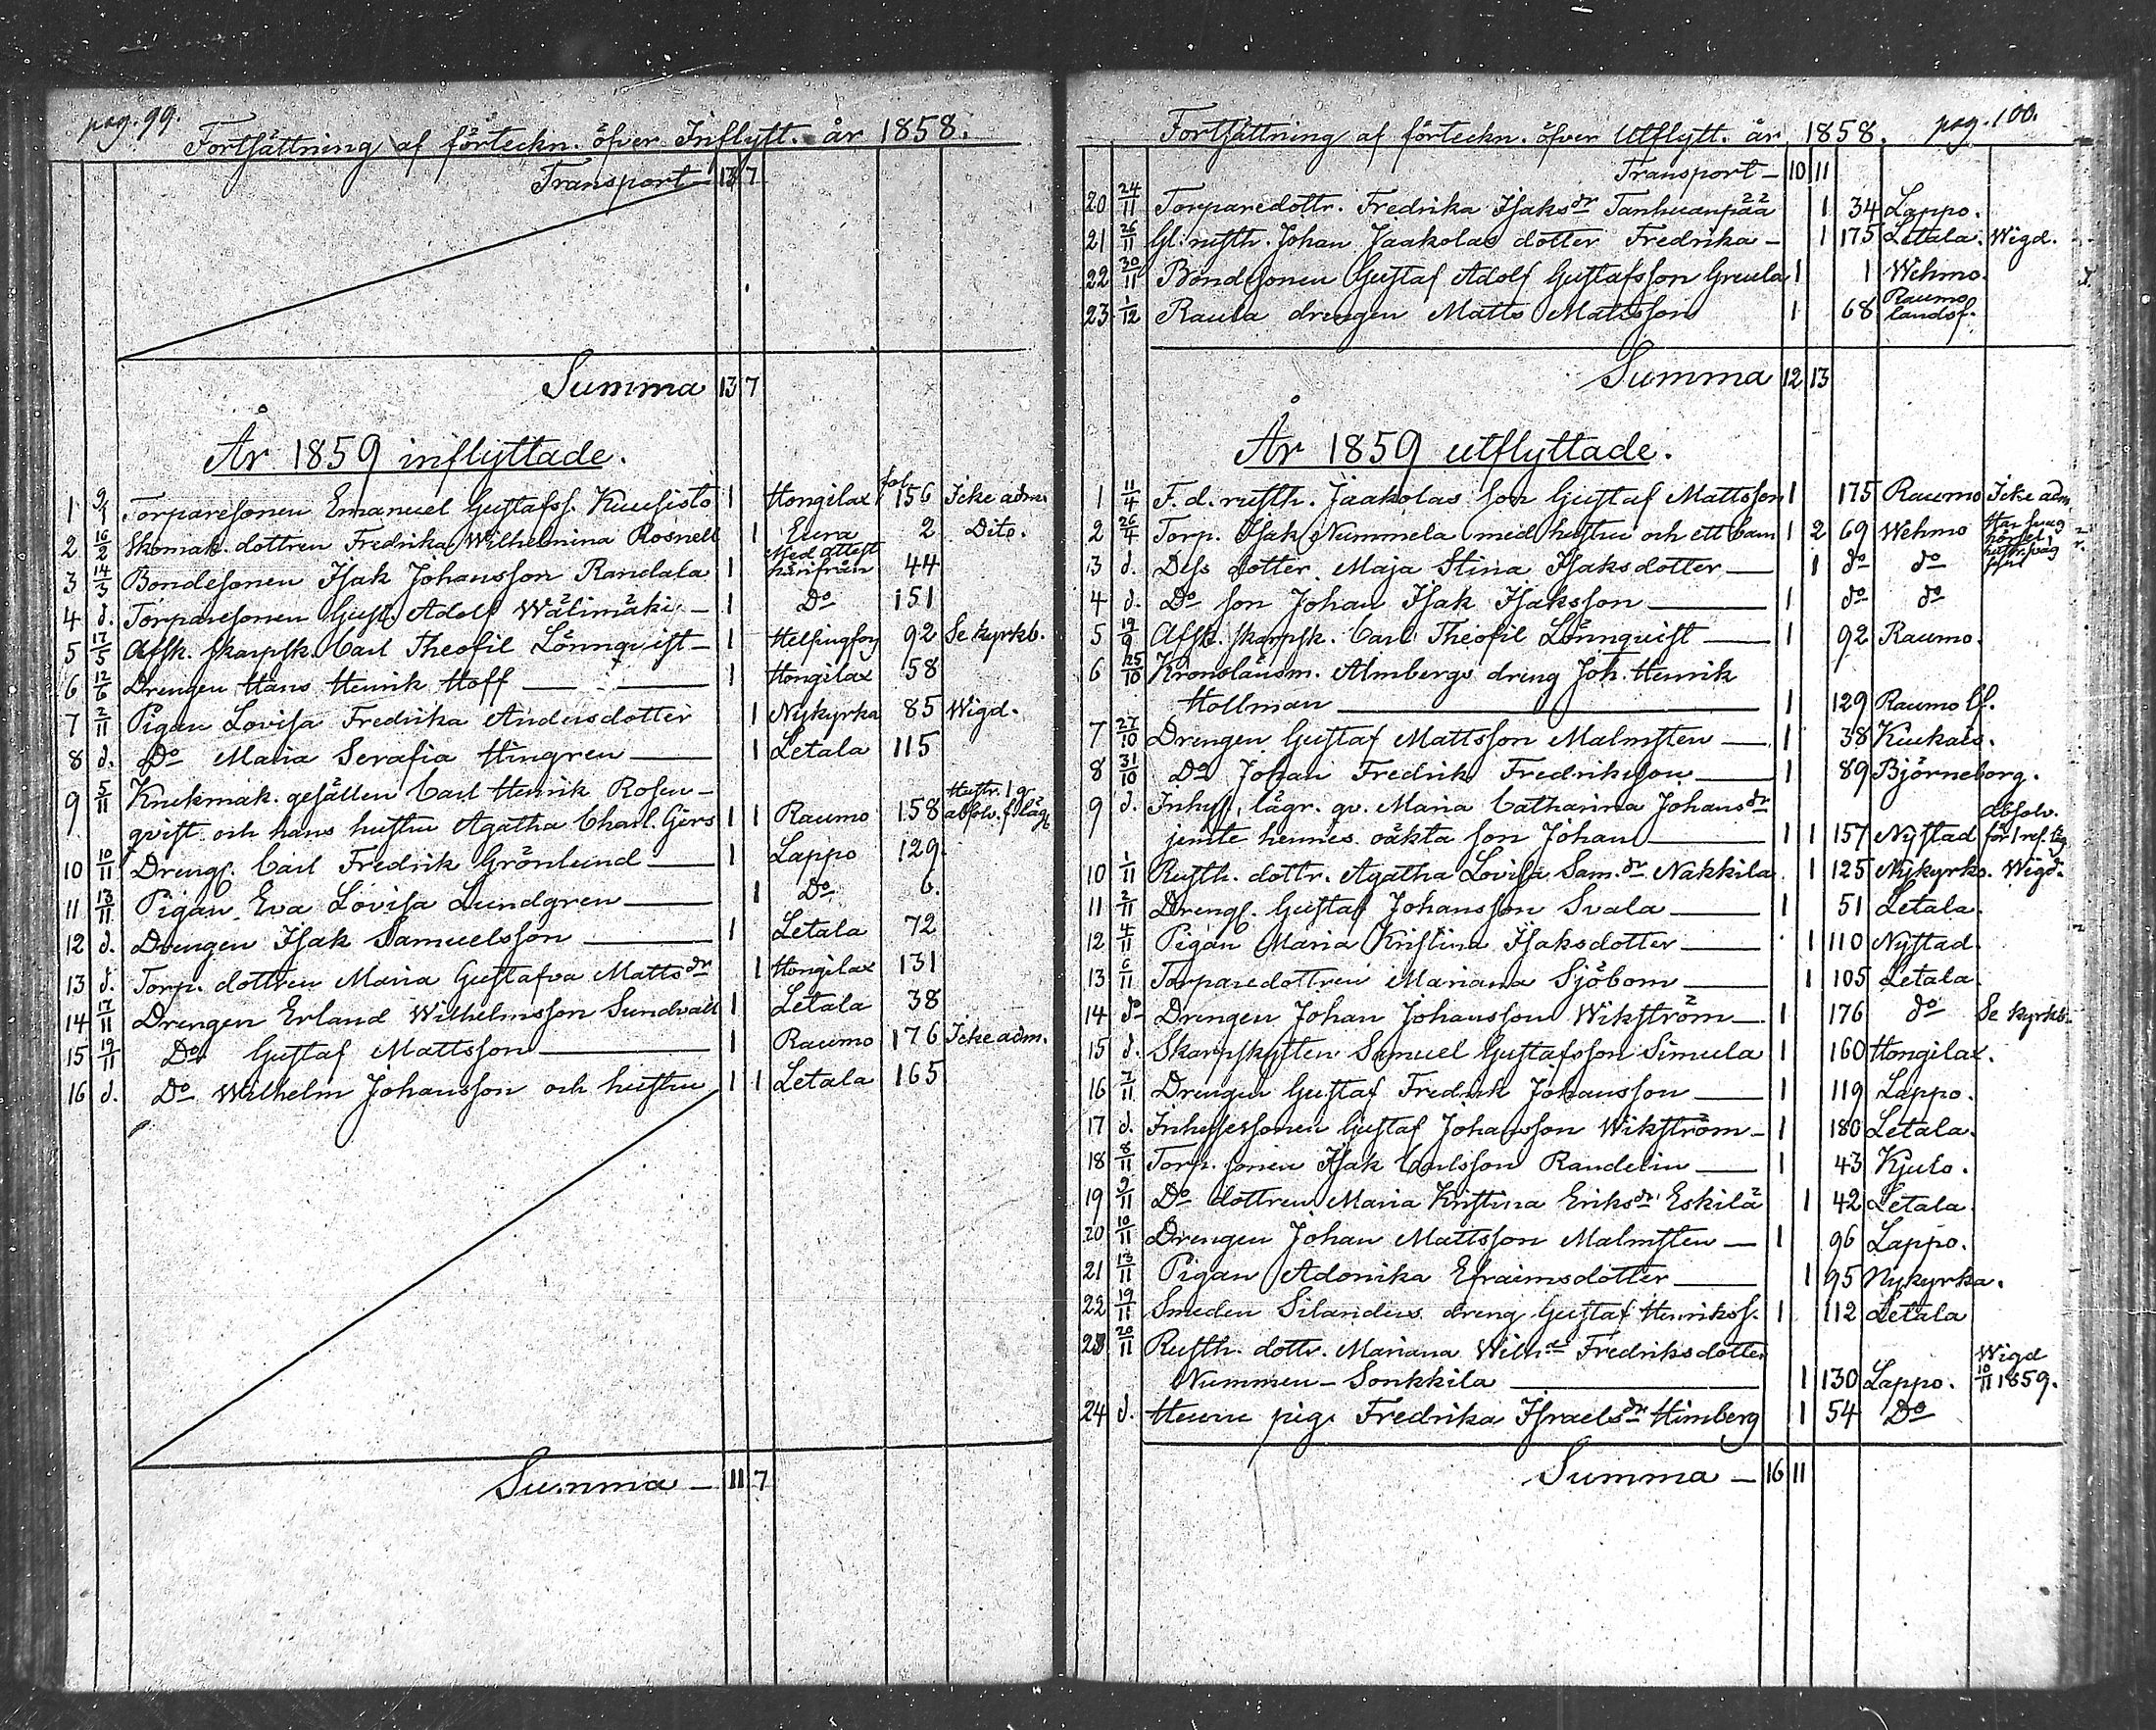 pag. 99.
Fortsättning af förteckn. öfver Inflytt. år 1858.
Transport — 13 7
Summa 13 7
År 1859 inflyttade.
fol.
1 9/1 Torparesonen Emanuel Gustafss. Kuusisto 1 Hongilax 156 Icke adm.
2 16/2 Skomak. dottren Fredrika Wilhelmina Rosnell 1 Eura 2 Dito.
3 14/3 Bondesonen Isak Johansson Randala 1 Med attest härifrån 44
4 d. Torparesonen Gust. Adolf Wälimäki — 1 Do 151
5 17/5 Afsk. skarpsk. Carl Theofil Lönnqvist — 1 Helsingfors 92 Se kyrkb.
6 12/6 Drengen Hans Henrik Hoff — 1 Hongilax 58
7 2/11 Pigan Lovisa Fredrika Andersdotter 1 Nykyrka 85 Wigd.
8 d. Do Maria Serafia Hingren — 1 Letala 115
9 5/11 Knekmak. gesällen Carl Henrik Rosen-
qvist och hans hustru Agatha Charl. Gers 1 1 Raumo 158 Hustr. 1 gr. absolv. f. läg.
10 10/11 Drengs. Carl Fredrik Grönlund — 1 Lappo 129.
11 13/11 Pigan Eva Lovisa Lundgren — 1 Do 6.
12 d. Drengen Isak Samuelsson — 1 Letala 72
13 d. Torp. dottren Maria Gustafva Mattsdr 1 Hongilax 131
14 17/11 Drengen Erland Wilhelmsson Sundvall 1 Letala 38
15 19/11 Do Gustaf Mattsson — 1 Raumo 176 Icke adm.
16 d. Do Wilhelm Johansson och hustru 1 1 Letala 165
Summa — 11 7
pag. 100.
Fortsättning af förteckn. öfver Utflytt. år 1858.
Transport — 10 11
20 24/11 Torparedottr. Fredrika Isaksdr Tanhuanpää 1 34 Lappo.
21 26/11 Gl. rusth. Johan Jaakolas dotter Fredrika — 1 175 Letala. Wigd.
22 30/11 Bondesonen Gustaf Adolf Gustafsson Greula 1 1 Wehmo.
23 1/12 Raula drengen Matts Mattsson 1 68 Raumo landsf.
Summa 12 13
År 1859 utflyttade.
1 11/4 F. d. rusth. Jaakolas son Gustaf Mattsson 1 175 Raumo Icke adm.
2 26/4 Torp. Isak Nummela med hustru och ett barn 1 2 69 Wehmo
3 d. Dess dotter Maja Stina Isaksdotter — 1 do do
4 d. Do son Johan Isak Isaksson — 1 do do
5 19/9 Afsk. skarpsk. Carl Theofil Lönnqvist — 1 92 Raumo.
6 25/10 Kronolänsm. Almbergs dreng Joh. Henrik
Hollman — 1 129 Raumo lf.
7 27/10 Drengen Gustaf Mattsson Malmsten — 1 38 Kiukais.
8 31/10 Do Johan Fredrik Fredriksson — 1 89 Björneborg.
9 d. Inhys. lägr. qv. Maria Catharina Johansdr
jemte hennes oäkta son Johan — 1 1 157 Nystad absolv. för 1 res. läg.
10 1/11 Rusth. dottr. Agatha Lovisa Sam.dr Nakkila 1 125 Nykyrko. Wigd.
11 2/11 Drengs. Gustaf Johansson Svala — 1 51 Letala.
12 4/11 Pigan Maria Kristina Isaksdotter — 1 110 Nystad
13 6/11 Torparedottren Mariana Sjöbom — 1 105 Letala
14 do Drengen Johan Johansson Wikström — 1 176 do Se kyrkb.
15 d. Skarpskytten Samuel Gustafsson Simula 1 160 Hongilax.
16 7/11 Drengen Gustaf Fredrik Johansson — 1 119 Lappo.
17 d. Inhysessonen Gustaf Johansson Wikström — 1 180 Letala.
18 8/11 Torp. sonen Isak Carlsson Randelin — 1 43 Kjulo.
19 9/11 Do dottren Maria Kristina Eriksdr Eskilä 1 42 Letala
20 10/11 Drengen Johan Mattsson Malmsten — 1 96 Lappo.
21 13/11 Pigan Adonika Efraimsdotter — 1 95 Nykyrka.
22 19/11 Smeden Silanders dreng Gustaf Henrikss. 1 112 Letala
23 20/11 Rusth. dottr. Mariana Wilh:a Fredriksdotter
Nummen-Sonkkila — 1 130 Lappo. Wigd 10/11 1859.
24 d. Hemm pig. Fredrika Israelsdr Himberg 1 54 Do
Summa — 16 11